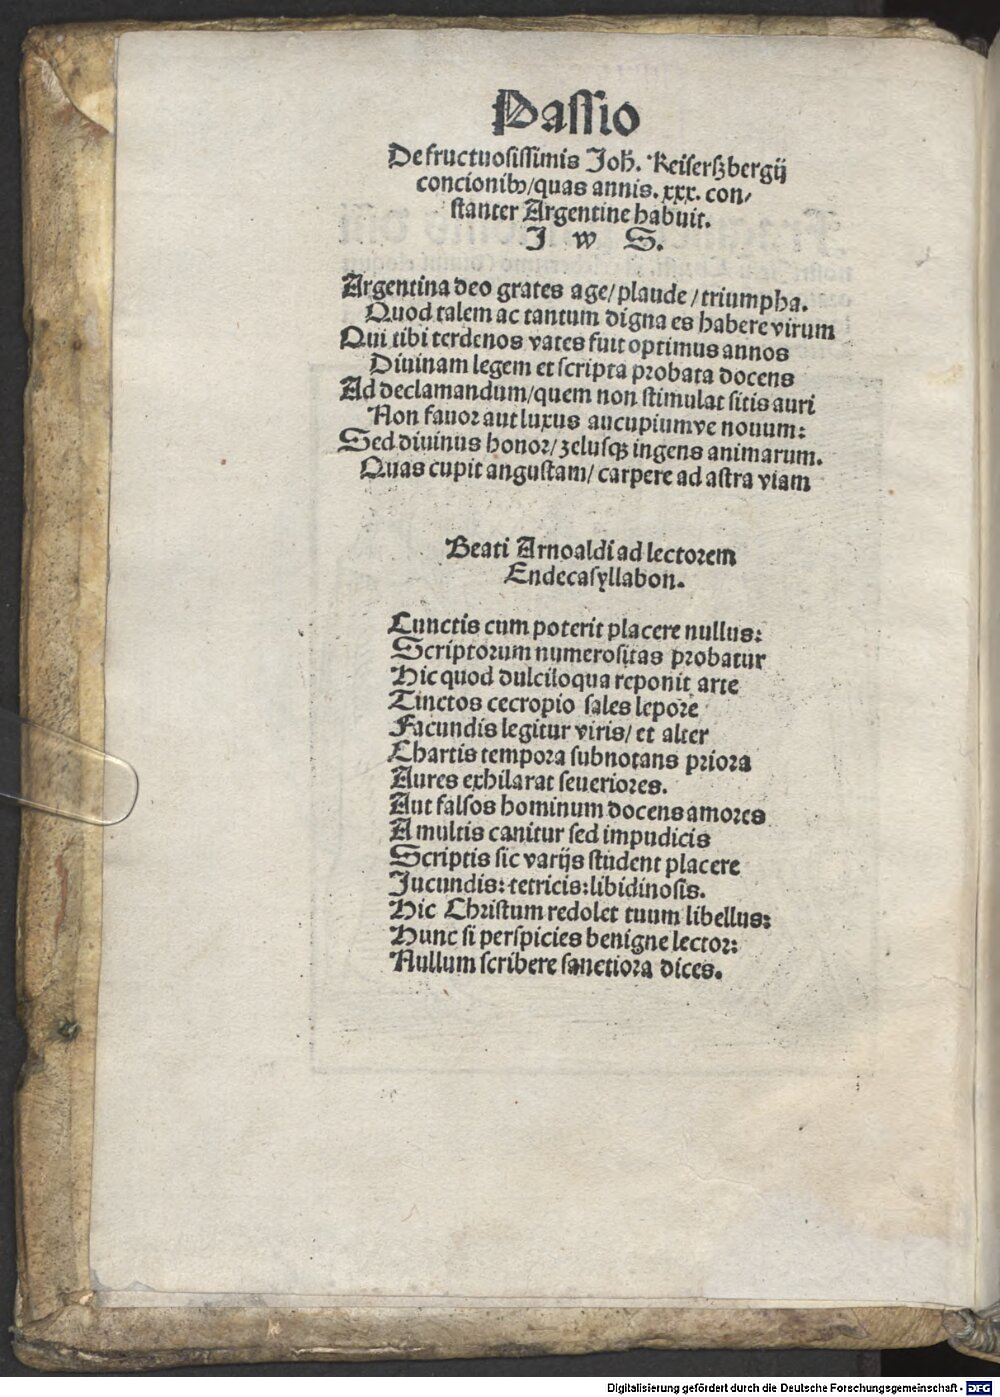 Passio
De fructuosissimis Joh̄. Keiserszbergij
concionibꝰ/quas annis. xxx. con/
stanter Argentine habuit.
J w S.
Argentina deo grates age/plaude/triumpha.
Quod talem ac tantum digna es habere virum
Qui tibi terdenos vates fuit optimus annos
Diuinam legem et scripta probata docens
Ad declamandum/quem non stimulat sitis auri
Non fauor aut luxus aucupiumve nouum:
Sed diuinus honor/zelusqꝫ ingens animarum.
Quas cupit angustam/carpere ad astra viam
Beati Arnoaldi ad lectorem
Endecasyllabon.
Cunctis cum poterit placere nullus:
Scriptorum numerositas probatur
Hic quod dulciloqua reponit arte
Tinctos cecropio sales lepore
Facundis legitur viris/et alter
Chartis tempora subnotans priora
Aures exhilarat seueriores.
Aut falsos hominum docens amores
A multis canitur sed impudicis
Scriptis sic varijs student placere
Jucundis: tetricis: libidinosis.
Hic Christum redolet tuum libellus:
Hunc si perspicies benigne lector:
Nullum scribere sanctiora dices.
Digitalisierung gefördert durch die Deutsche Forschungsgemeinschaft - DFG